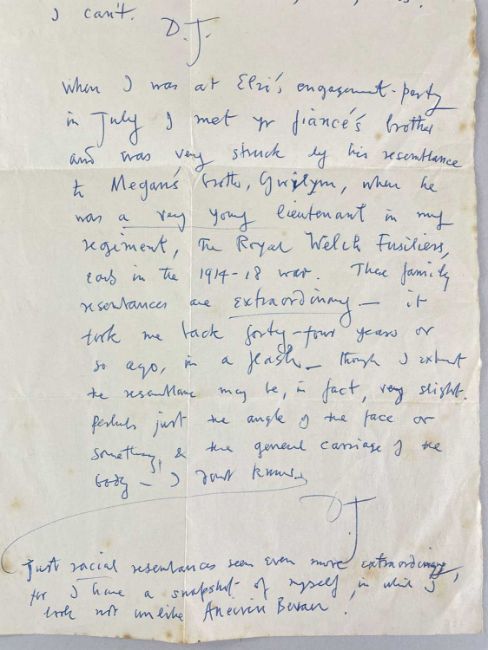 I can't.
D.J.
When I was at Elri's engagement-party
in July I met yr fiancé's brother
and was very struck by his resemblance
to Megan's brother, Gwilym, when he
was a very young lieutenant in my
regiment, The Royal Welch Fusiliers,
early in the 1914-18 war. These family
resemblances are extraordinary — it
took me back forty-four years or
so ago, in a flash — though I expect
the resemblance may be, in fact, very slight.
Perhaps just the angle of the face or
something, & the general carriage of the
body — I don't know.
D.J.
Just racial resemblances seem even more extraordinary,
for I have a snapshot of myself in which I
look not unlike Aneurin Bevan.